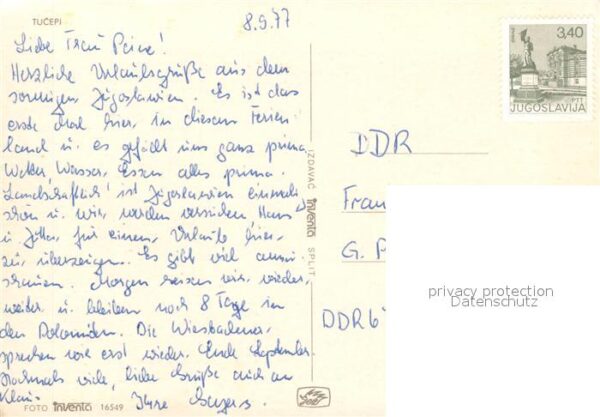 TUČEPI
8.9.77
Liebe Frau
Herzliche Urlaubsgrüße aus dem
sonnigen Jugoslawien. Es ist das
erste Mal hier, in diesem Ferien
land u. es gefällt uns ganz prima
Wetter, Wasser, Essen alles prima.
Landschaftlich ist Jugoslawien einmalig
schön u. wir werden versuchen Hans
u. für einen Urlaub hier
zu überzeugen. Es gibt viel anzu-
schauen. Morgen reisen wir wieder
weiter u. bleiben noch 8 Tage in
den Dolomiten. Die Wiesbadener
sprechen wir erst wieder Ende September
Nochmals viele, liebe Grüße auch an
Klaus. Ihre
FOTO inventa 16549
IZDAVAČ inventa SPLIT
3,40
PTT
JUGOSLAVIJA
DDR
Frau
G. P
DDR 6
privacy protection
Datenschutz